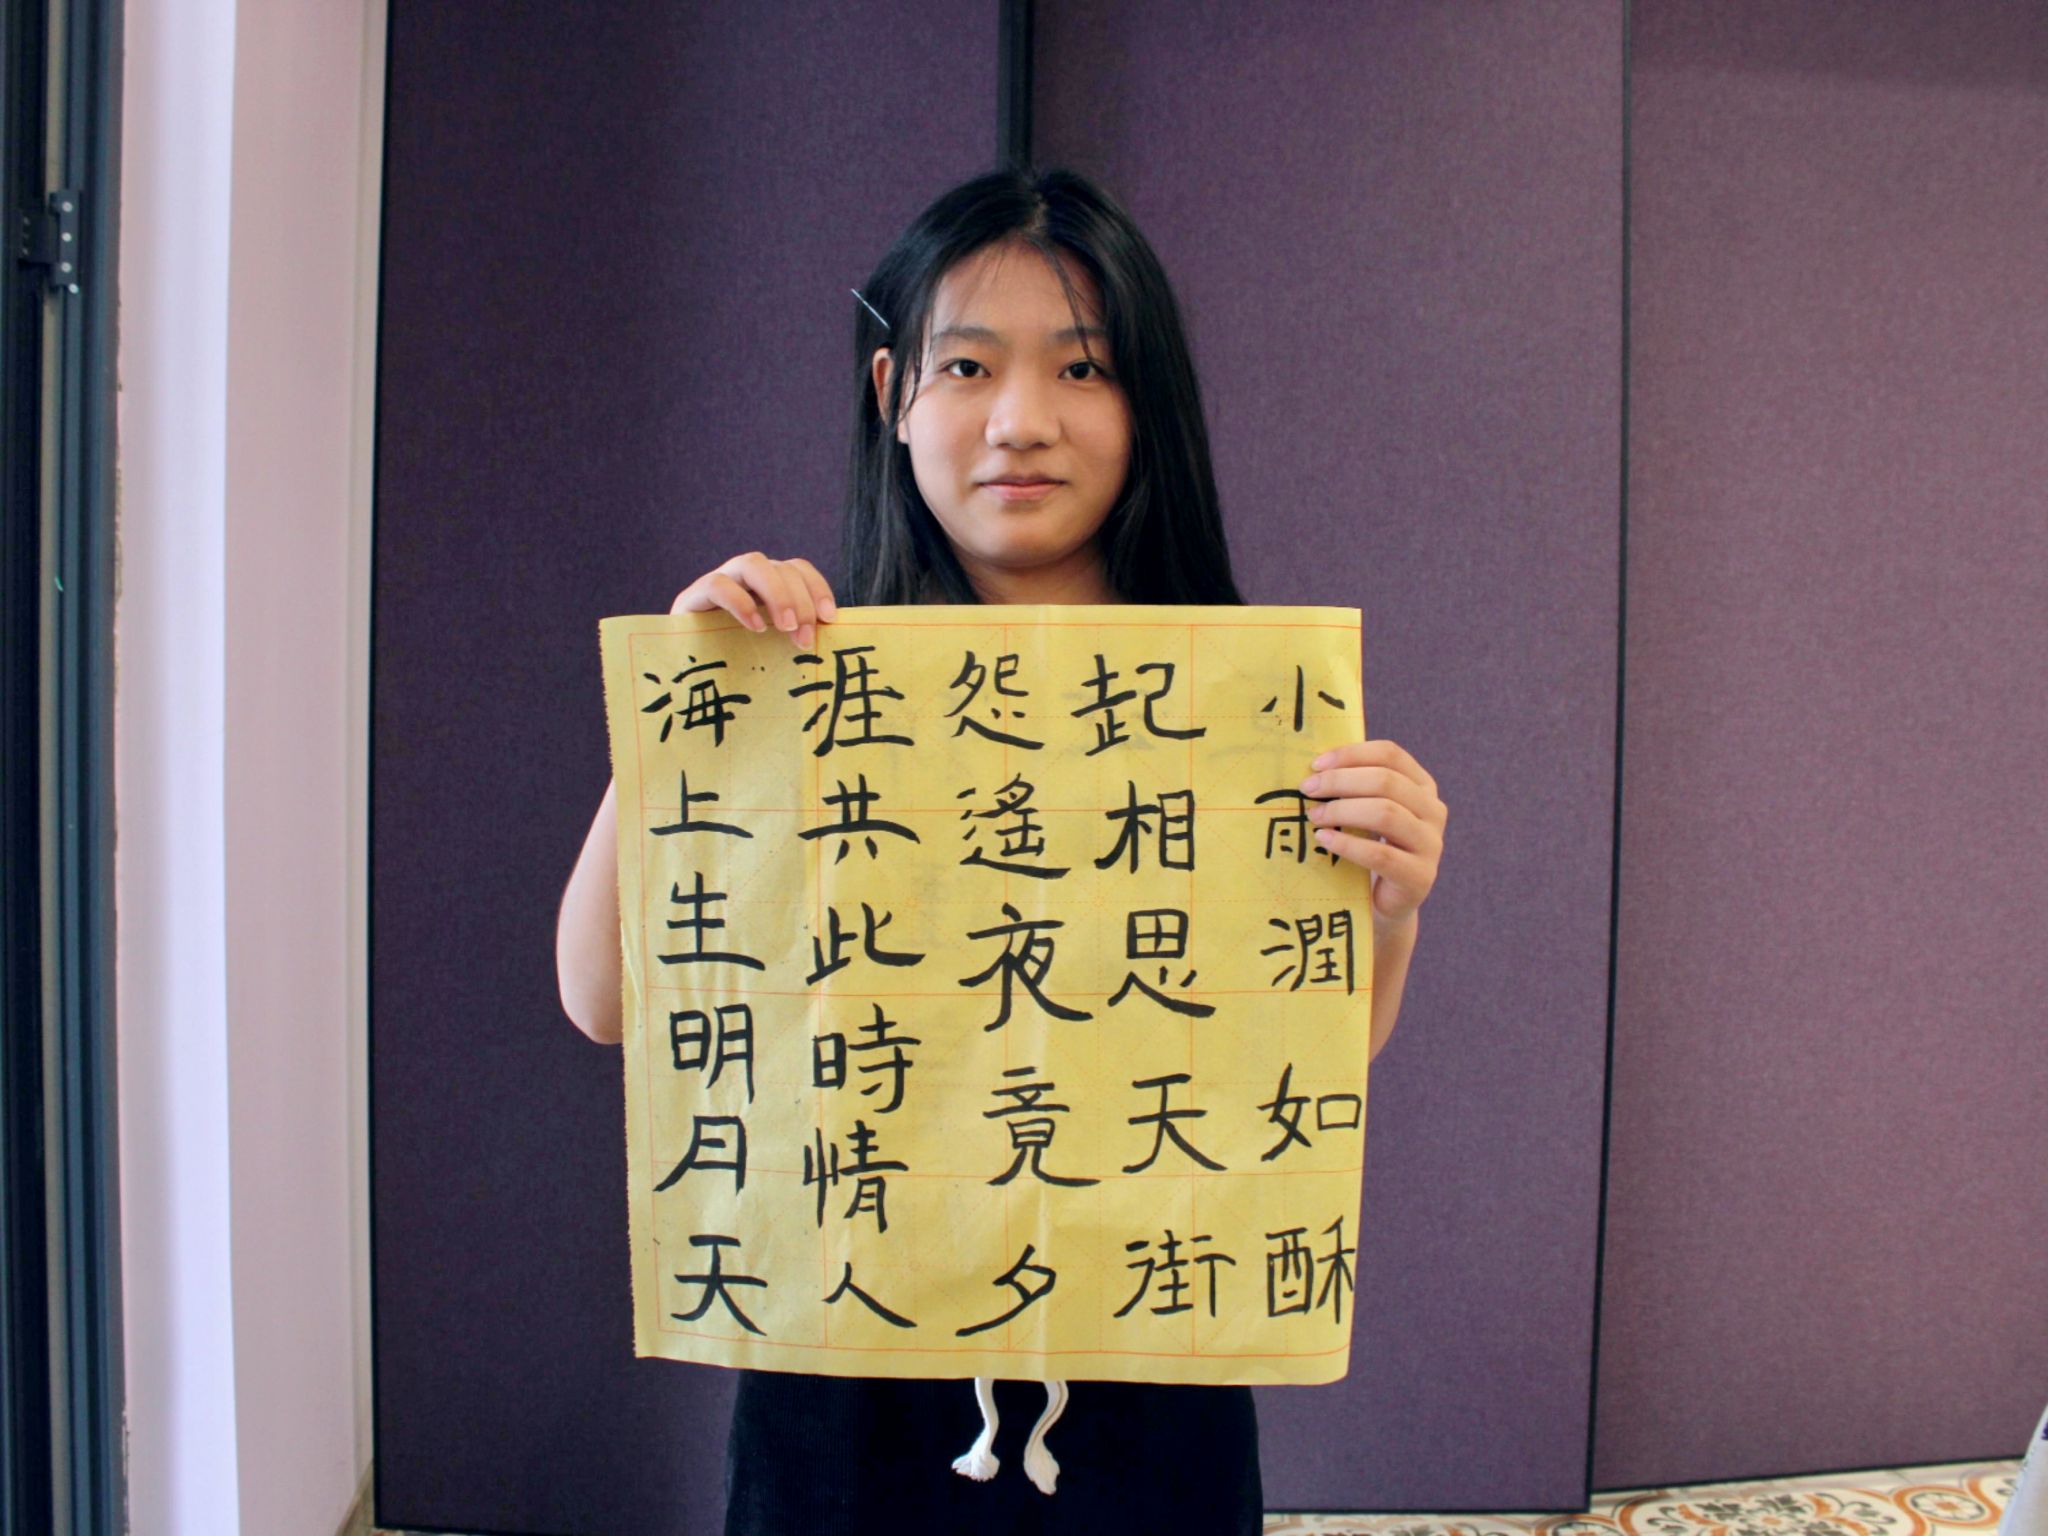 海上生明月天
涯共此時情人
怨遙夜竟夕
起相思天街
小雨潤如酥